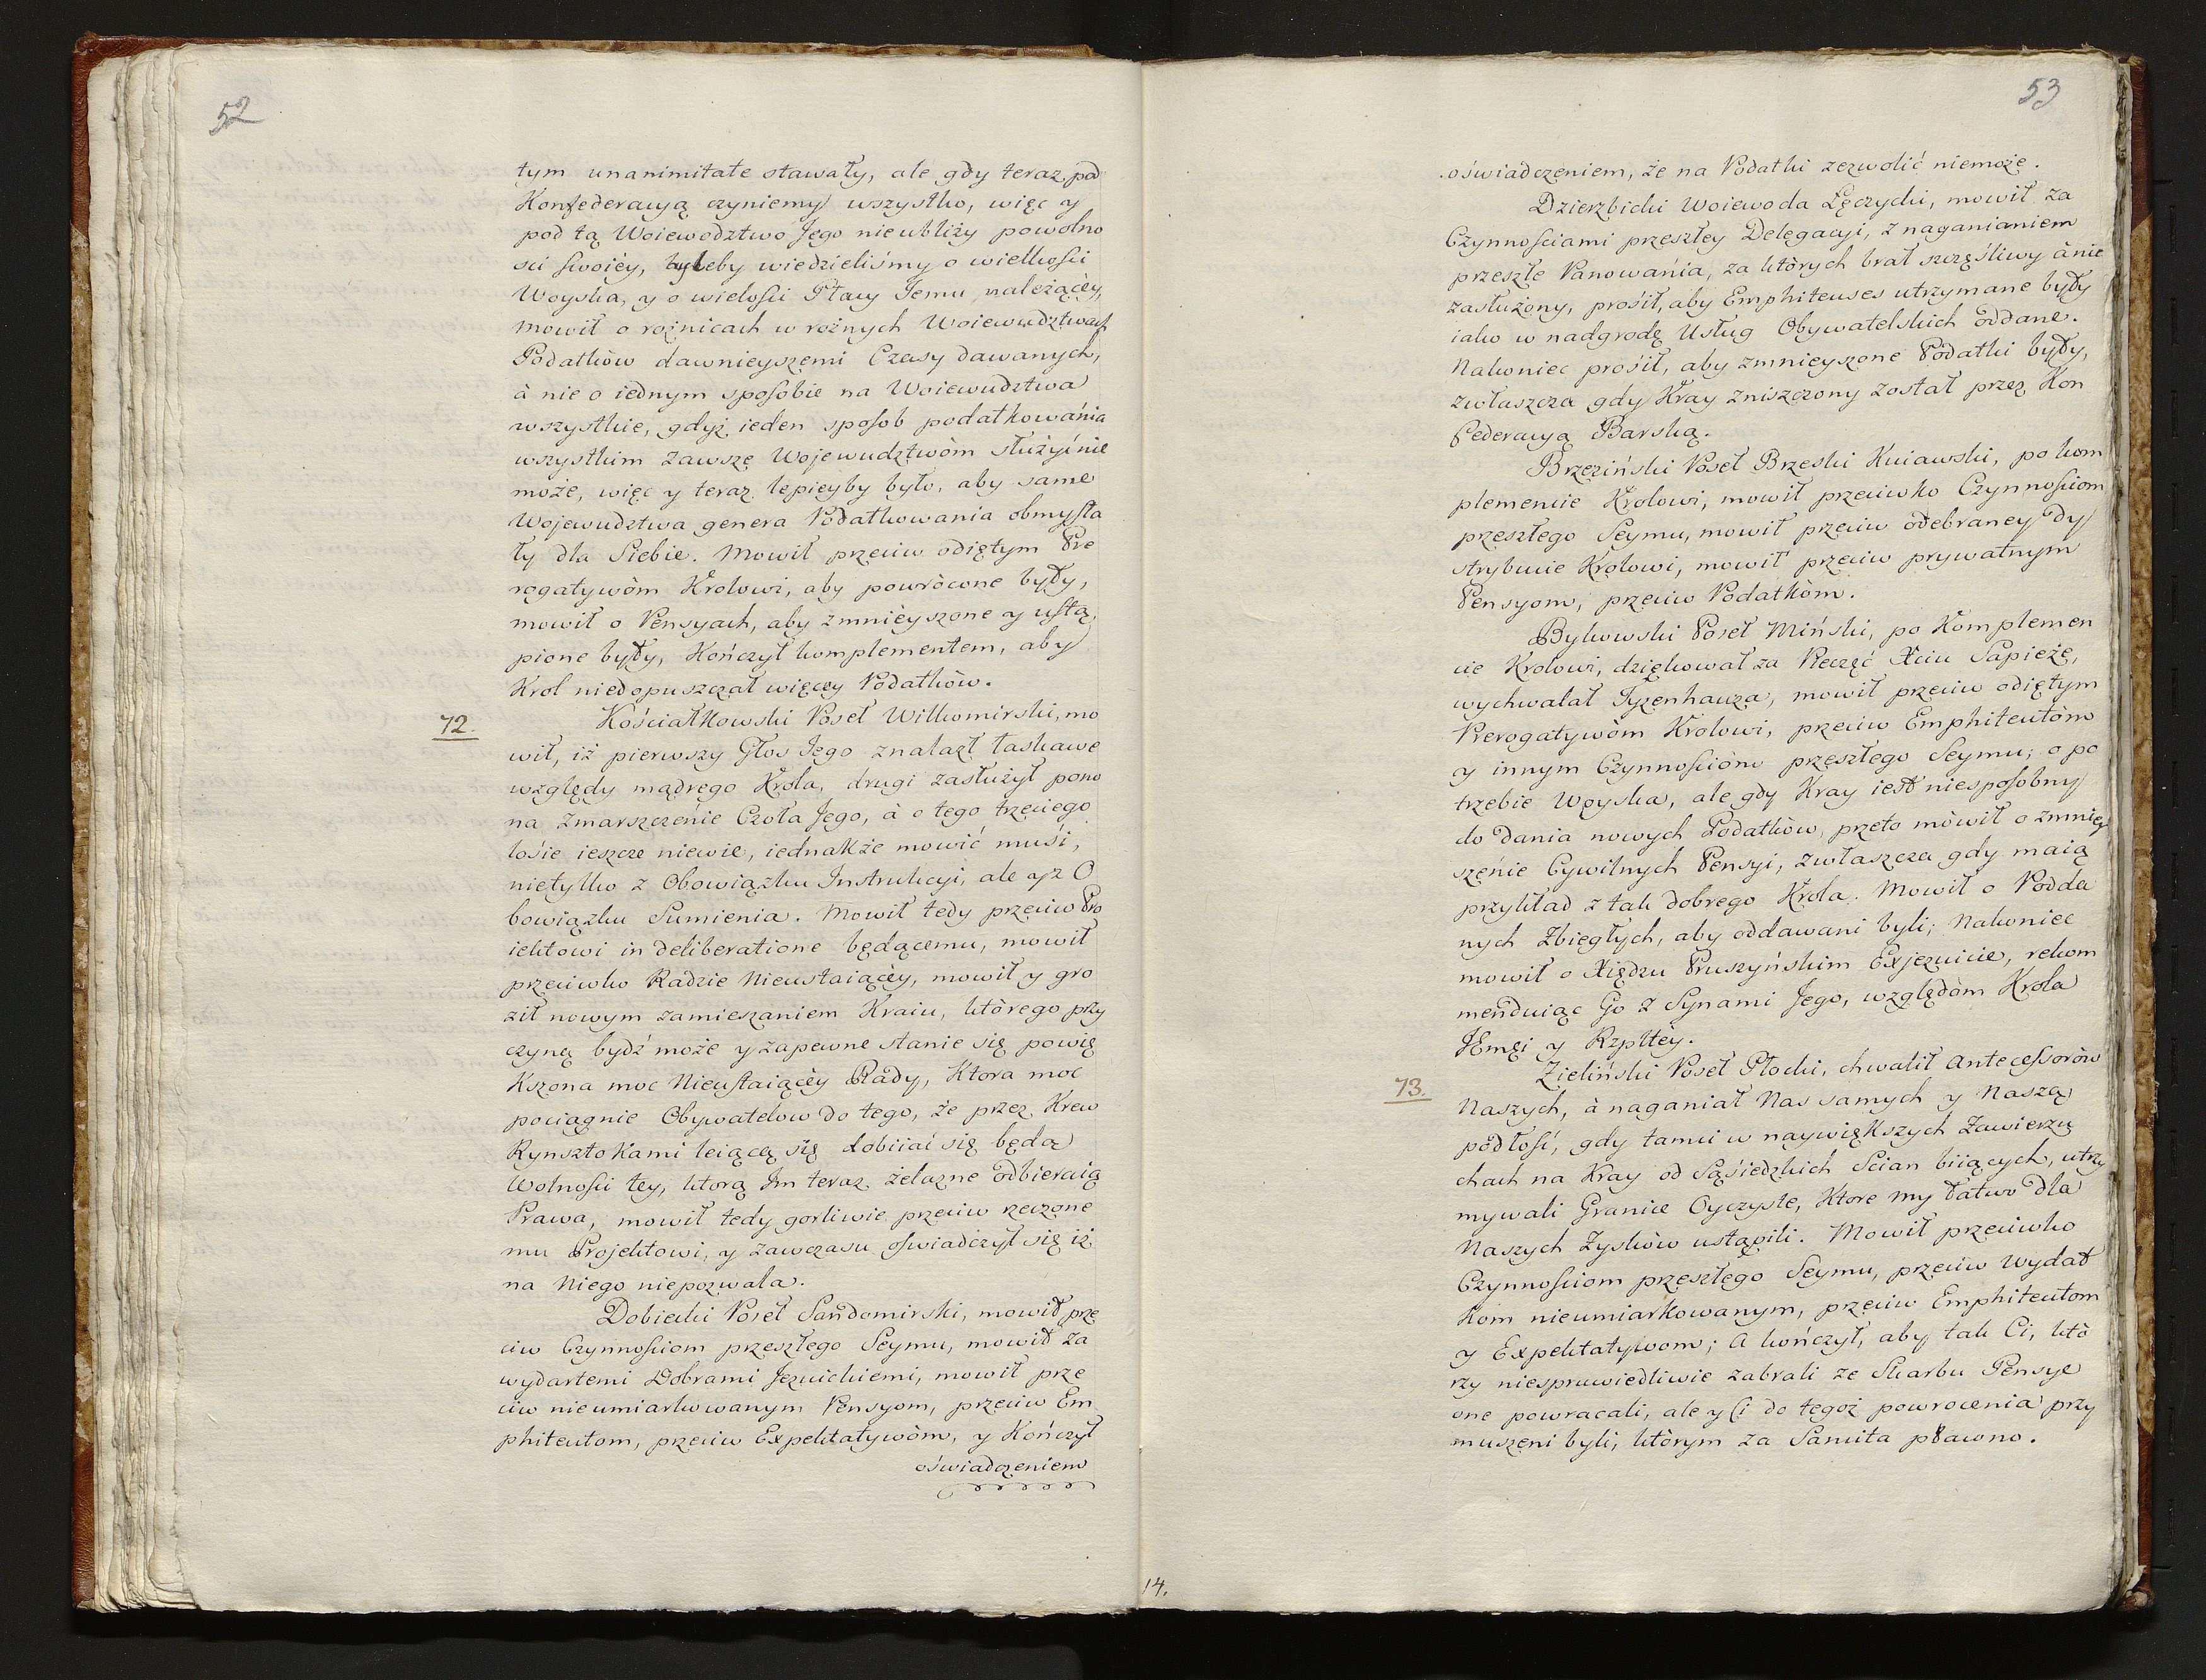 52
tym unanimitate stawały, ale gdy teraz pod
Konfederacyą czyniemy wszystko, więc y
pod tą Woiewodztwo Jego nieubliży powolno
sci swoiéy, byleby wiedzieliśmy o wielkosci
Woyska, y o wielosci Płacy Jemu należącéy,
mowił o rożnicach w rożnych Woiewudztwach
Podatków dawnieyszemi Czasy dawanych,
à nie o iednym sposobie na Woiewudztwa
wszystkie, gdyż ieden sposob podatkowánia
wszystkim zawsze Wojewudztwòm służyć nie
może, więc y teraz lepieyby było, aby same
Wojewudztwa genera Podatkowania obmysla
ły dla Siebie. Mowił przeciw odiętym Pre
rogatywòm Krolowi, aby powròcone były,
mowił o Pensyach, aby zmniéyszone y ustą
pione były, Kończył komplementem, aby
Krol niedopuszczał więcey Podatkòw.
72. Kościałkowski Poseł Wilkomirski, mo
wił, iż pierwszy Głos Jego znalazł łaskawe
względy mądrego Krola, drugi zasłużył pono
na zmarszczénie Czoła Jego, à o tego trzeciego
losie ieszcze niewie, iednakże mowić muśi,
nietylko z Obowiązku Instrukcyi, ale y z O
bowiązku Sumienia. Mowił tedy przeciw Pro
iektowi in deliberatione będącemu, mowił
przeciwko Radzie Nieustaiącéy, mowił y gro
ził nowym zamieszaniem Kraiu, ktòrego przy
czyną bydź może y zapewne stanie się powię
Kszona moc Nieustaiącéy Rady, Ktora moc
pociągnie Obywatelow do tego, że przez Krew
Rynsztokami leiącą się dobiiać się będą
Wolnosci tey, ktorą Im teraz żelazne odbieraią
Prawa, mowił tedy gorliwie przeciw rzeczone
mu Projektowi, y zawczasu oswiadczył się iż
na Niego niepozwala.
Dobiecki Poseł Sandomirski, mowił prze
ciw Czynnosciom przeszłego Seymu, mowił za
wydartemi Dobrami Jezuickiemi, mowił prze
ciw nieumiarkowanym Pensyom, przeciw Em
phiteutom, przeciw Expektatywòm, y Kończył
oświadczeniem
53
oświadczeniem, że na Podatki zezwolić niemoże.
Dzierzbicki Woiewoda Łęczycki, mowił za
Czynnosciami przeszłey Delegacyi, z naganianiem
przeszłe Panowánia, za ktòrych brał szczęśliwy à nie
zasłużony, prosił, aby Emphiteuses utrzymane były
iako w nadgrodę Usług Obywatelskich oddane.
Nakoniec prosił, aby zmnieyszone Podatki były,
zwłaszcza gdy Kray zniszczony został przez Kon
federacyą Barską.
Brzeziński Poseł Brzeski Kuiawski, po kom
plemencie Krolowi, mowił przeciwko Czynnosciom
przeszłego Seymu, mowił przeciw odebraney Dy
strybucie Krolowi, mowił przeciw prywatnym
Pensyom, przeciw Podatkòm.
Bykowski Poseł Miński, po Komplemen
cie Krolowi, dziękował za Pieczęć Xciu Sapieże,
wychwalał Tyzenhauza, mowił przeciw odiętym
Prerogatywòm Krolowi, przeciw Emphiteutòm
y innym Czynnościòm przeszłego Seymu; o po
trzebie Woyska, ale gdy Kray iest niesposobny
do Dania nowych Podatkòw, przeto mòwił o zmniey
szénie Cywilnych Pensyi, zwłaszcza gdy maią
przykład z tak dobrego Krola. Mowił o Podda
nych Zbiegłych, aby oddawani byli; Nakoniec
mowił o Xiędzu Pruszyńskim Exjezuicie, rekom
menduiąc Go z Synami Jego, względòm Krola
JEmci y Rzpltéy.
73. Zieliński Poseł Płocki, chwalił Antecessoròw
Naszych, à naganiał Nas samych y Naszą
podłość, gdy tamci w naywiększych Zawieru
chach na Kray od Sąsiedzkich Scian biiących, utrzy
mywali Granice Oyczyste, Ktore my łatwo dla
Naszych Zyskòw ustąpili. Mowił przeciwko
Czynnosciom przeszłego Seymu, przeciw Wydat
Kom nieumiarkowanym, przeciw Emphiteutom
y Expektatywom; A kończył, aby tak Ci, ktò
rzy niesprawiedliwie zabrali ze Skarbu Pensye
one powracali, ale y Ci do tegoż powrocenia przy
muszeni byli, ktòrym za Sancita płacono.
14.